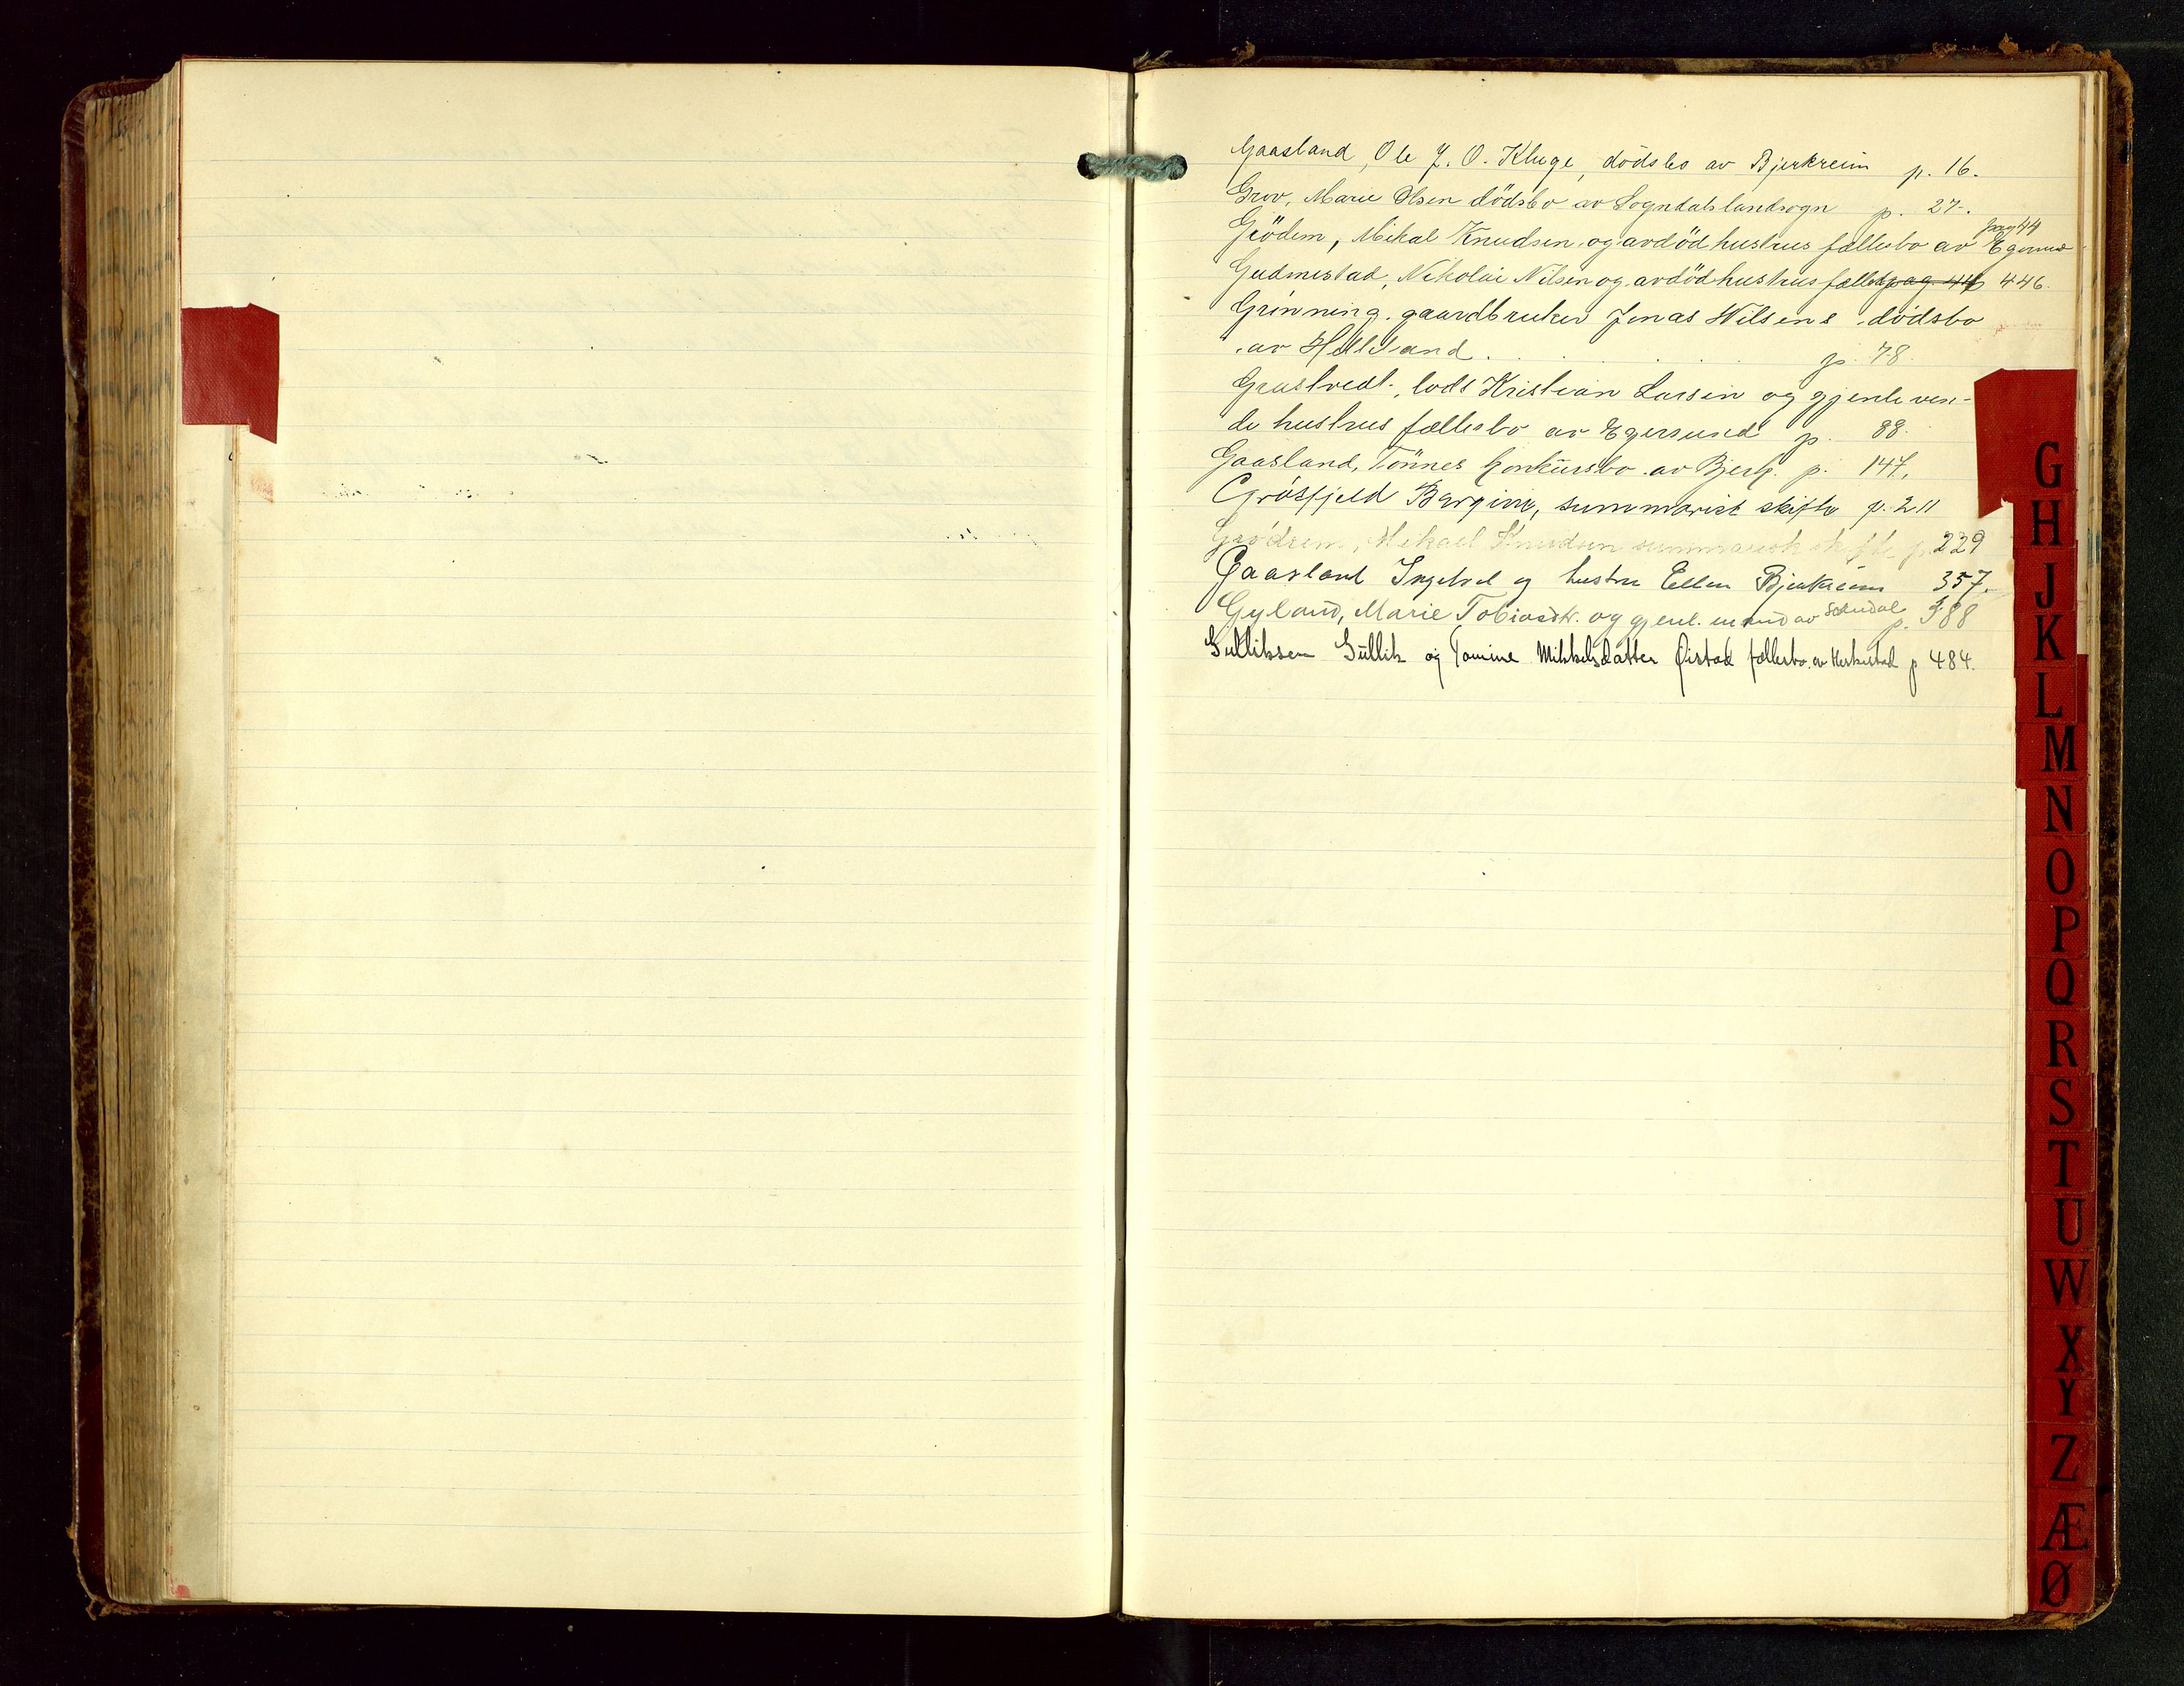 Gaasland, Ole J. O. Kluge, dödsbo av Bjerkreim p. 16.
Grov, Marie Olsen dödsbo av Sogndalslandsogn p. 27.
pag 44
Grödem, Mikal Knudsen og avdöd hustrus fællesbo av Egersund
Gudmestad, Nikolai Nilsen og avdöd hustrus fælles pag. 44 446.
Grönning. gaardbruker Jonas Nilsens dödsbo
av Helleland . . . . . p. 78.
Grastvedt, lods Kristian Larsen og gjenleven-
de hustrus fællesbo av Egersund p. 88.
Gaasland, Tönnes konkursbo av Bjerk. p. 147.
Grösfjeld Bergine, summarisk skifte p. 211
Grödem, Mikael Knudsen summarisk skifte p. 229
Gaasland Ingebret og hustru Ellen Bjerkreim 357.
Gyland, Marie Tobiasdtr. og gjenl. mand av Sokndal p. 388
Gulliksen Gullik og Tomine Mikkelsdatter Öistad fællesbo av Heskestad p 484.
G
H
J
K
L
M
N
O
P
Q
R
S
T
U
W
X
Y
Z
Æ
Ø